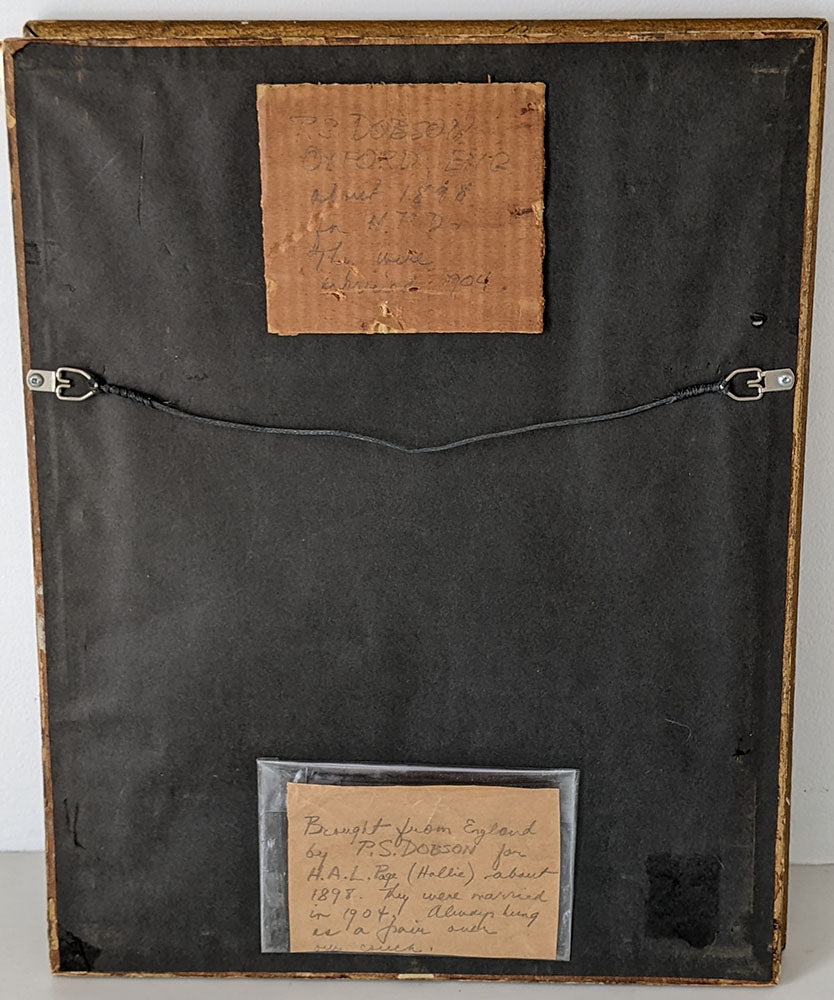 P.S DOBSON
OXFORD, ENG
about 1898
for H.
They were
married 1904.
Brought from England
by P.S. DOBSON for
H.A.L. Page (Hallie) about
1898. They were married
in 1904. Always hung
as a pair over
our couch.